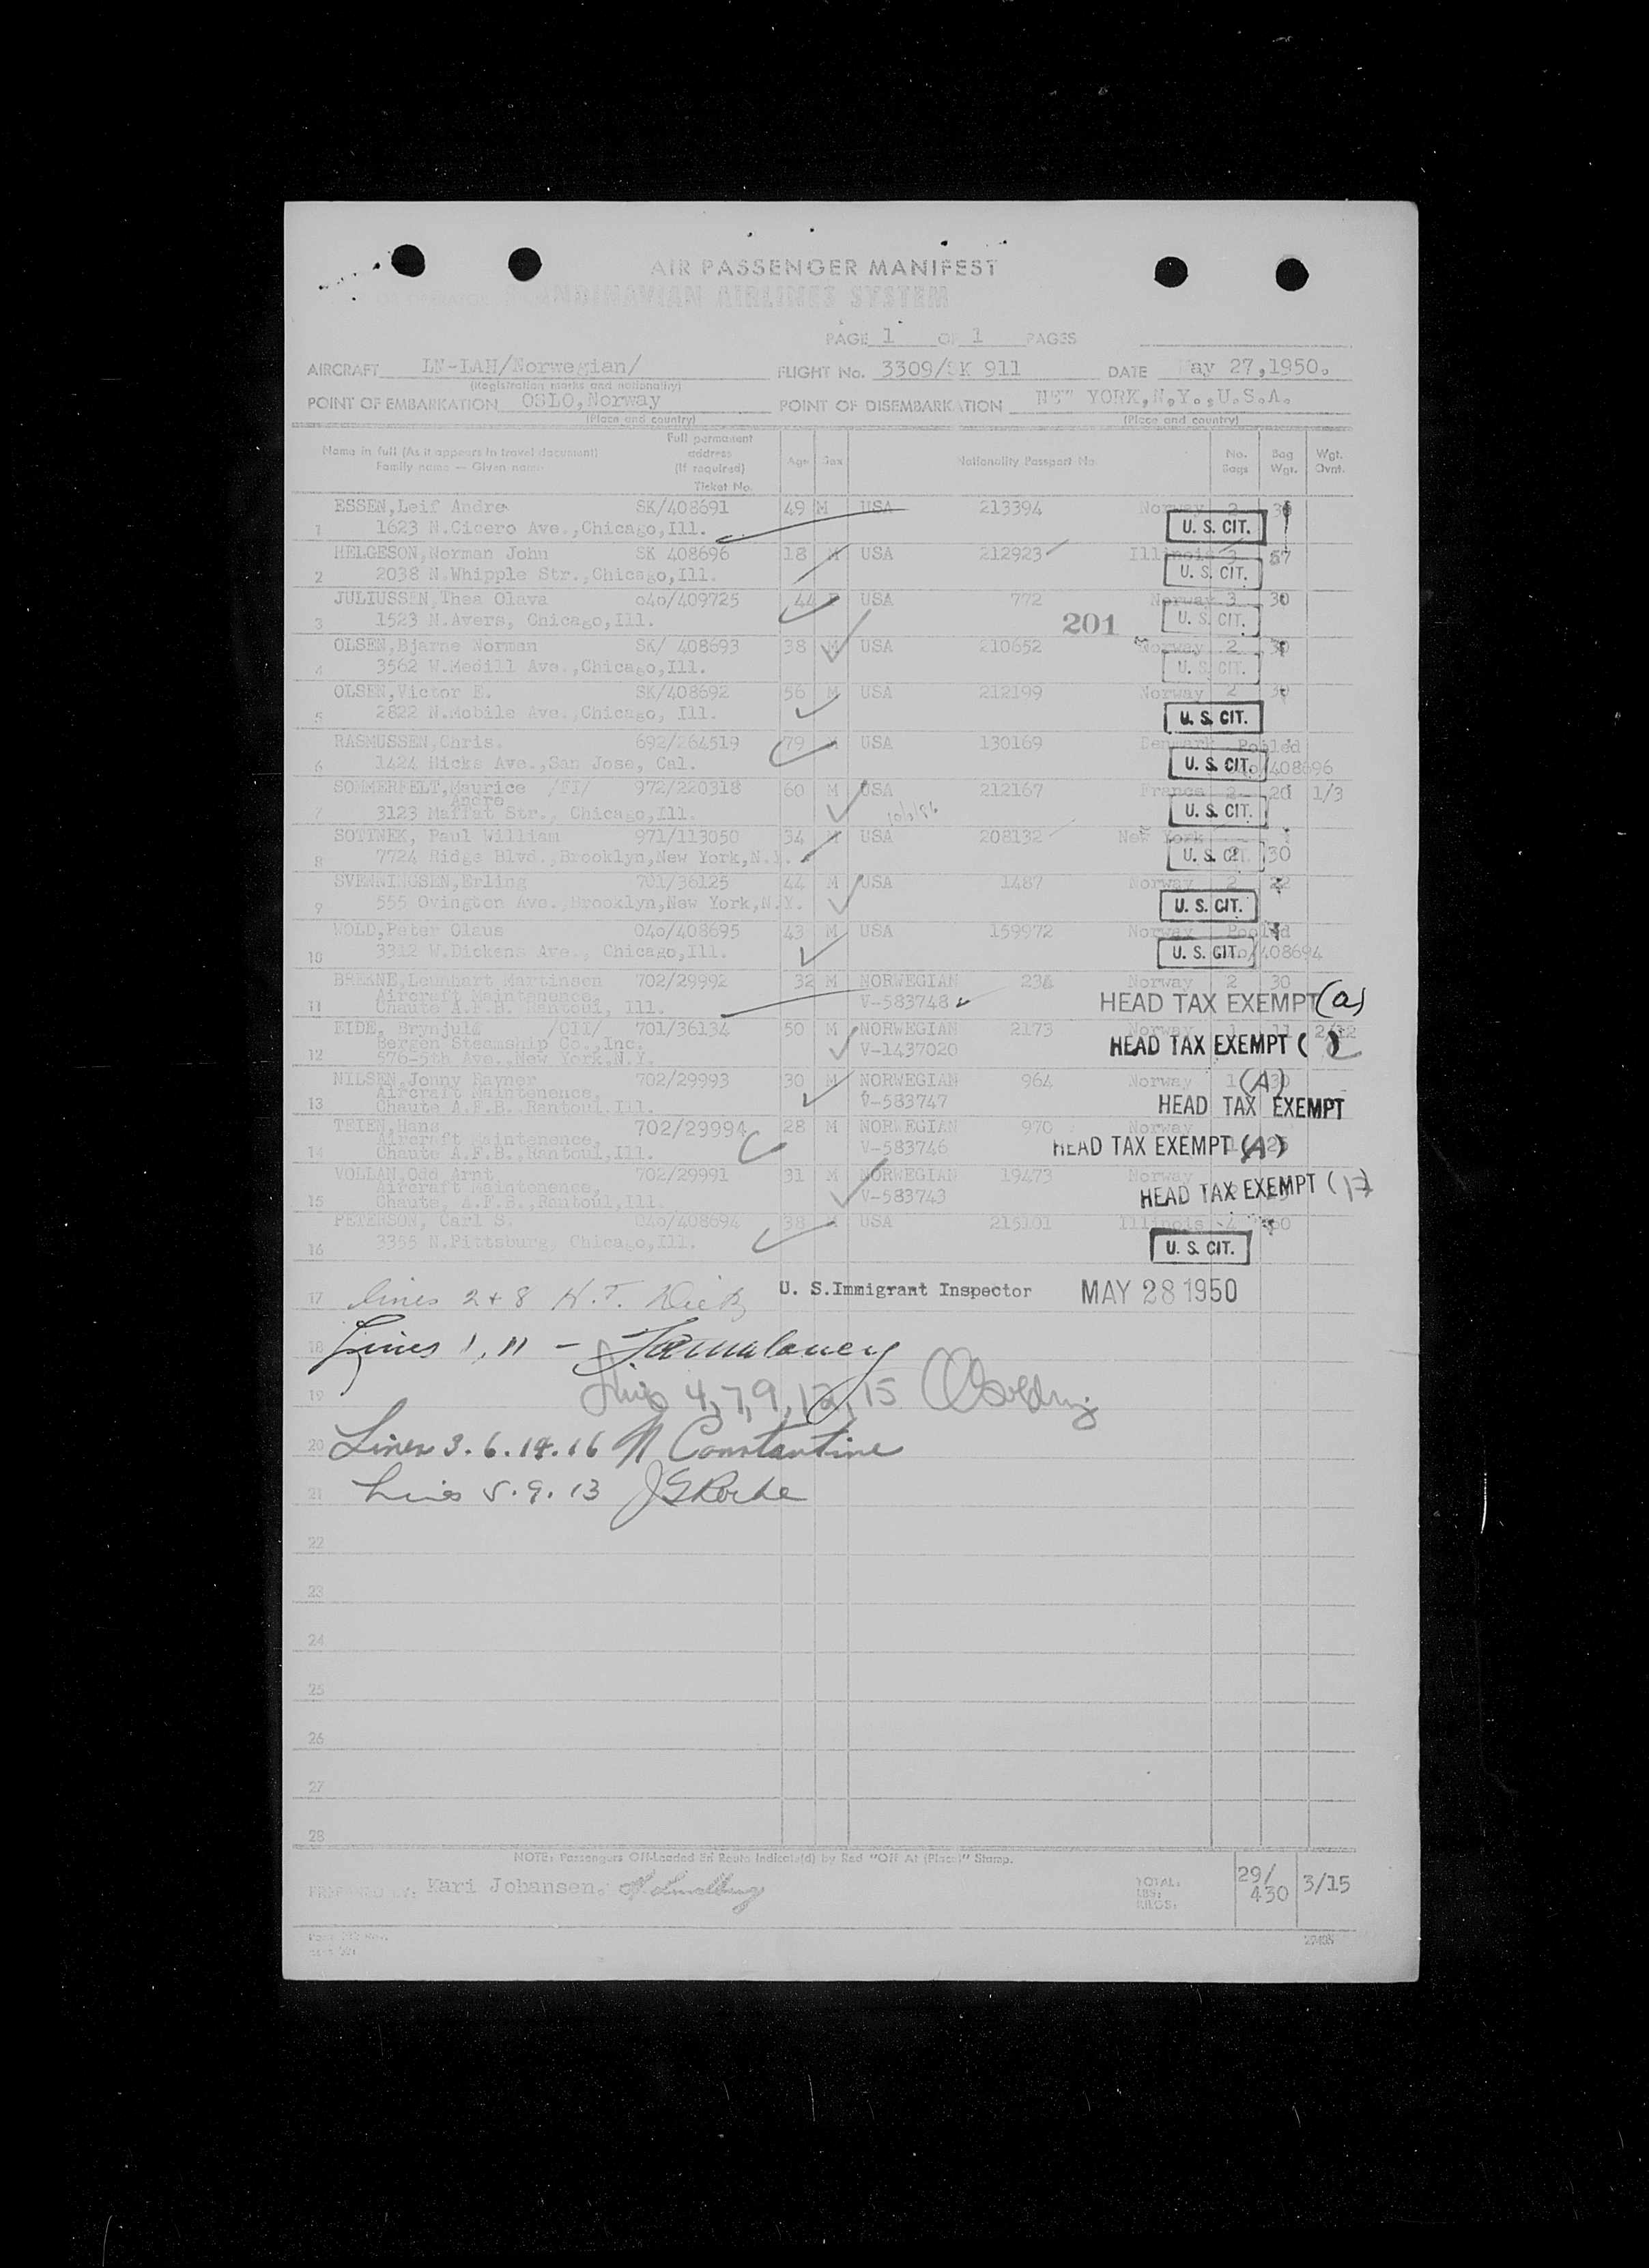 AIR PASSENGER MANIFEST
SCANDINAVIAN AIRLINES SYSTEM
PAGE 1 OF 1 PAGES
AIRCRAFT LN-LAH/Norwegian/ FLIGHT No. 3309/SK 911 DATE May 27,1950.
(Registration marks and nationality)
POINT OF EMBARKATION OSLO,Norway POINT OF DISEMBARKATION NEW YORK,N.Y.,U.S.A.
(Place and country) (Place and country)
Name in full (As it appears in travel document) Family name — Given name Full permanent address (If required) Ticket No. Age Sex Nationality Passport No. No. Bags Bag Wgt. Wgt. Ovnt.
ESSEN,Leif Andre SK/408691 49 M USA 213394 Norway 2
1 1623 N.Cicero Ave.,Chicago,Ill. U. S. CIT.
HELGESON,Norman John SK 408696 18 M USA 212923 Illinois 3 57
2 2038 N.Whipple Str.,Chicago,Ill. U. S. CIT.
JULIUSSEN,Thea Olava 040/409725 44 USA 772 Norway 3 30
3 1523 N.Avers, Chicago,Ill. 201 U. S. CIT.
OLSEN,Bjarne Norman SK/ 408693 38 M USA 210652 Norway 2 30
4 3562 W.Medill Ave.,Chicago,Ill. U. S. CIT.
OLSEN,Victor E. SK/408692 56 M USA 212199 Norway 2 30
5 2822 N.Mobile Ave.,Chicago, Ill. U. S. CIT.
RASMUSSEN,Chris. 692/264519 79 M USA 130169 Denmark Pooled
6 1424 Hicks Ave.,San Jose, Cal. U. S. CIT. /408696
SOMMERFELT,Maurice /FI/ 972/220318 60 M USA 212167 France 2 20 1/3
Andre
7 3123 Maffat Str., Chicago,Ill. U. S. CIT.
SOTINEK, Paul William 971/113050 34 M USA 208132 New York
8 7724 Ridge Blvd.,Brooklyn,New York,N.Y. U. S. CIT. 30
SVENNINGSEN,Erling 701/36125 44 M USA 1487 Norway 2 22
9 555 Ovington Ave.,Brooklyn,New York,N.Y. U. S. CIT.
WOLD,Peter Olaus 040/408695 43 M USA 159972 Norway Pooled
10 3312 W.Dickens Ave., Chicago,Ill. U. S. CIT. /408694
BREKNE,Leonhart Martinsen 702/29992 32 M NORWEGIAN 234 Norway 2 30
Aircraft Maintenence, V-583748
11 Chaute A.F.B. Rantoul, Ill. HEAD TAX EXEMPT (a)
EIDE, Brynjulf /CII/ 701/36134 50 M NORWEGIAN 2173 Norway 1 11 2/12
Bergen Steamship Co.,Inc. V-1437020 HEAD TAX EXEMPT ( )
12 576-5th Ave.,New York,N.Y.
NILSEN,Jonny Rayner 702/29993 30 M NORWEGIAN 964 Norway 1 (A) 30
Aircraft Maintenence, V-583747
13 Chaute A.F.B. Rantoul,Ill. HEAD TAX EXEMPT
TEIEN,Hans 702/29994 28 M NORWEGIAN 970 Norway
Aircraft Maintenence, V-583746 HEAD TAX EXEMPT (A)
14 Chaute A.F.B.,Rantoul,Ill.
VOLLAN,Odd Arnt 702/29991 31 M NORWEGIAN 19473 Norway
Aircraft Maintenence, V-583743 HEAD TAX EXEMPT
15 Chaute, A.F.B.,Rantoul,Ill.
PETERSON, Carl S. 040/408694 38 M USA 215101 Illinois 4 60
16 3355 N.Pittsburg, Chicago,Ill. U. S. CIT.
17 Lines 2 + 8 H.T. U. S.Immigrant Inspector MAY 28 1950
18 Lines 1, 11 -
19 4, 7, 9, 12, 15
20 Lines 3. 6. 14. 16 N Constantine
21 Lines 5. 9. 13 JG Roche
22
23
24
25
26
27
28
NOTE: Passengers Off-Loaded En Route Indicate(d) by Red "Off At (Place)" Stamp.
PREPARED BY: Kari Johansen. TOTAL: LBS: KILOS: 29/ 430 3/15